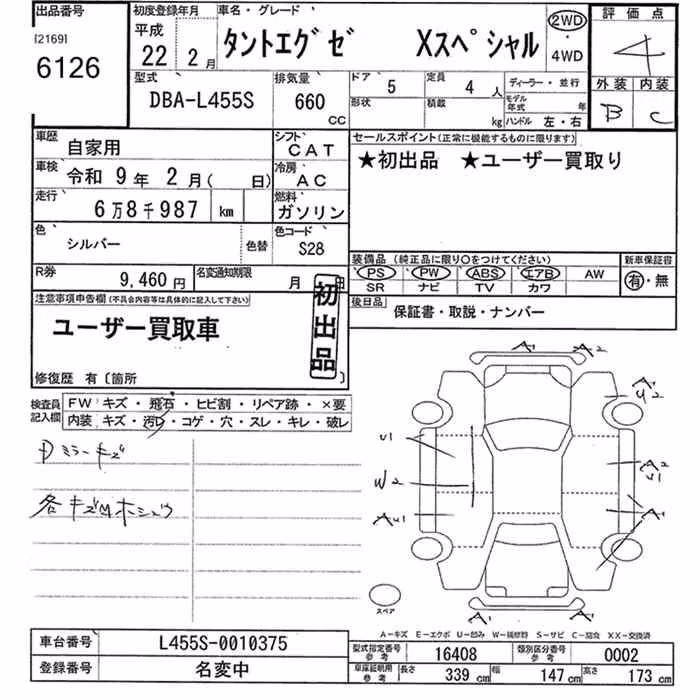 出品番号
[2169]
6126
初度登録年月
平成
22 2月
車名・グレード
タントエグゼ Xスペシャル
2WD
・
4WD
評価点
4
外装 内装
B C
型式
DBA-L455S
排気量
660
CC
ドア 5
定員 4人
形状
積載 kg
ディーラー・並行
モデル年式 年
ハンドル 左・右
車歴 自家用
シフト CAT
車検 令和 9年 2月( 日)
冷房 AC
走行 6万8千987 km
燃料 ガソリン
色 シルバー
色替
色コード S28
R券 9,460円
名変通知期限 月 日
セールスポイント(正常に機能するものに限ります)
★初出品 ★ユーザー買取り
装備品(純正品に限り○をつけてください)
PS PW ABS エアB AW
SR ナビ TV カワ
新車保証書
有・無
後日品 保証書・取説・ナンバー
注意事項申告欄(不具合内容等は具体的に記入して下さい)
ユーザー買取車
初出品
修復歴 有〔箇所 〕
検査員記入欄
FW キズ・飛石・ヒビ割・リペア跡・×要
内装 キズ・汚レ・コゲ・穴・スレ・キレ・破レ
Dミラーキズ
各キズMホシュウ
A1 A2
A1
U2
U1
W2
A2
U1
A U1
A1
A1 A1
スペア
A-キズ E-エクボ U-凹み W-補修跡 S-サビ C-腐食 XX-交換済
車台番号 L455S-0010375
登録番号 名変中
型式指定番号 参考 16408
類別区分番号 参考 0002
車庫証明用 参考 長さ 339cm 幅 147cm 高さ 173cm